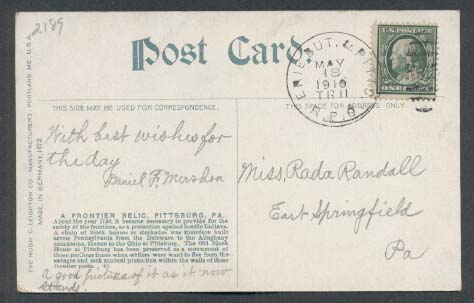 2189
Post Card
ERIE, BUT. & PITTS.
MAY
18
1910
TR.11
R.P.O.
U.S. POSTAGE
THIS SIDE MAY BE USED FOR CORRESPONDENCE.
THIS SPACE FOR ADDRESS ONLY.
THE HUGH C. LEIGHTON CO., MANUFACTURERS, PORTLAND, ME., U.S.A.
MADE IN GERMANY.
With best wishes for
the day
Daniel F. Mershon
Miss, Rada Randall
East Springfield
Pa
A FRONTIER RELIC, PITTSBURG, PA.
About the year 1756, it became necessary to provide for the
safety of the frontiers, as a protection against hostile Indians.
A chain of block houses or stockades was therefore built
across Pennsylvania from the Delaware to the Alleghany
mountains, thence to the Ohio at Pittsburg. The Old Block
House at Pittsburg has been preserved as a monument of
those perilous times when settlers were want to flee from the
savages and seek mutual protection within the walls of these
frontier posts.
A good picture of it as it now
stands!